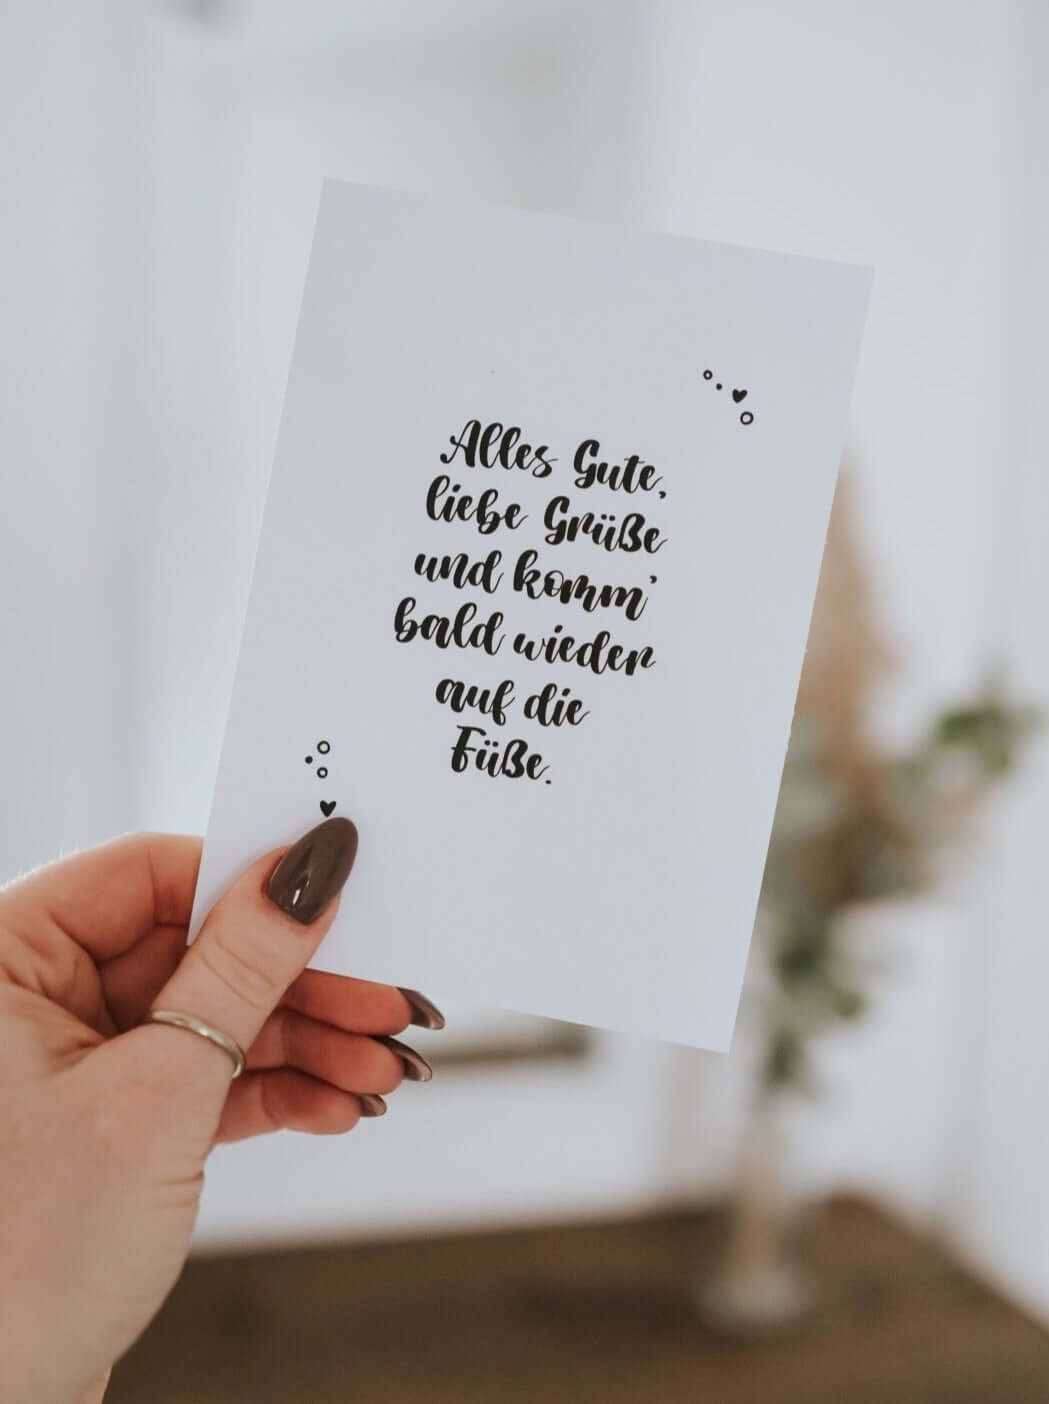 Alles Gute,
liebe Grüße
und komm'
bald wieder
auf die
Füße.